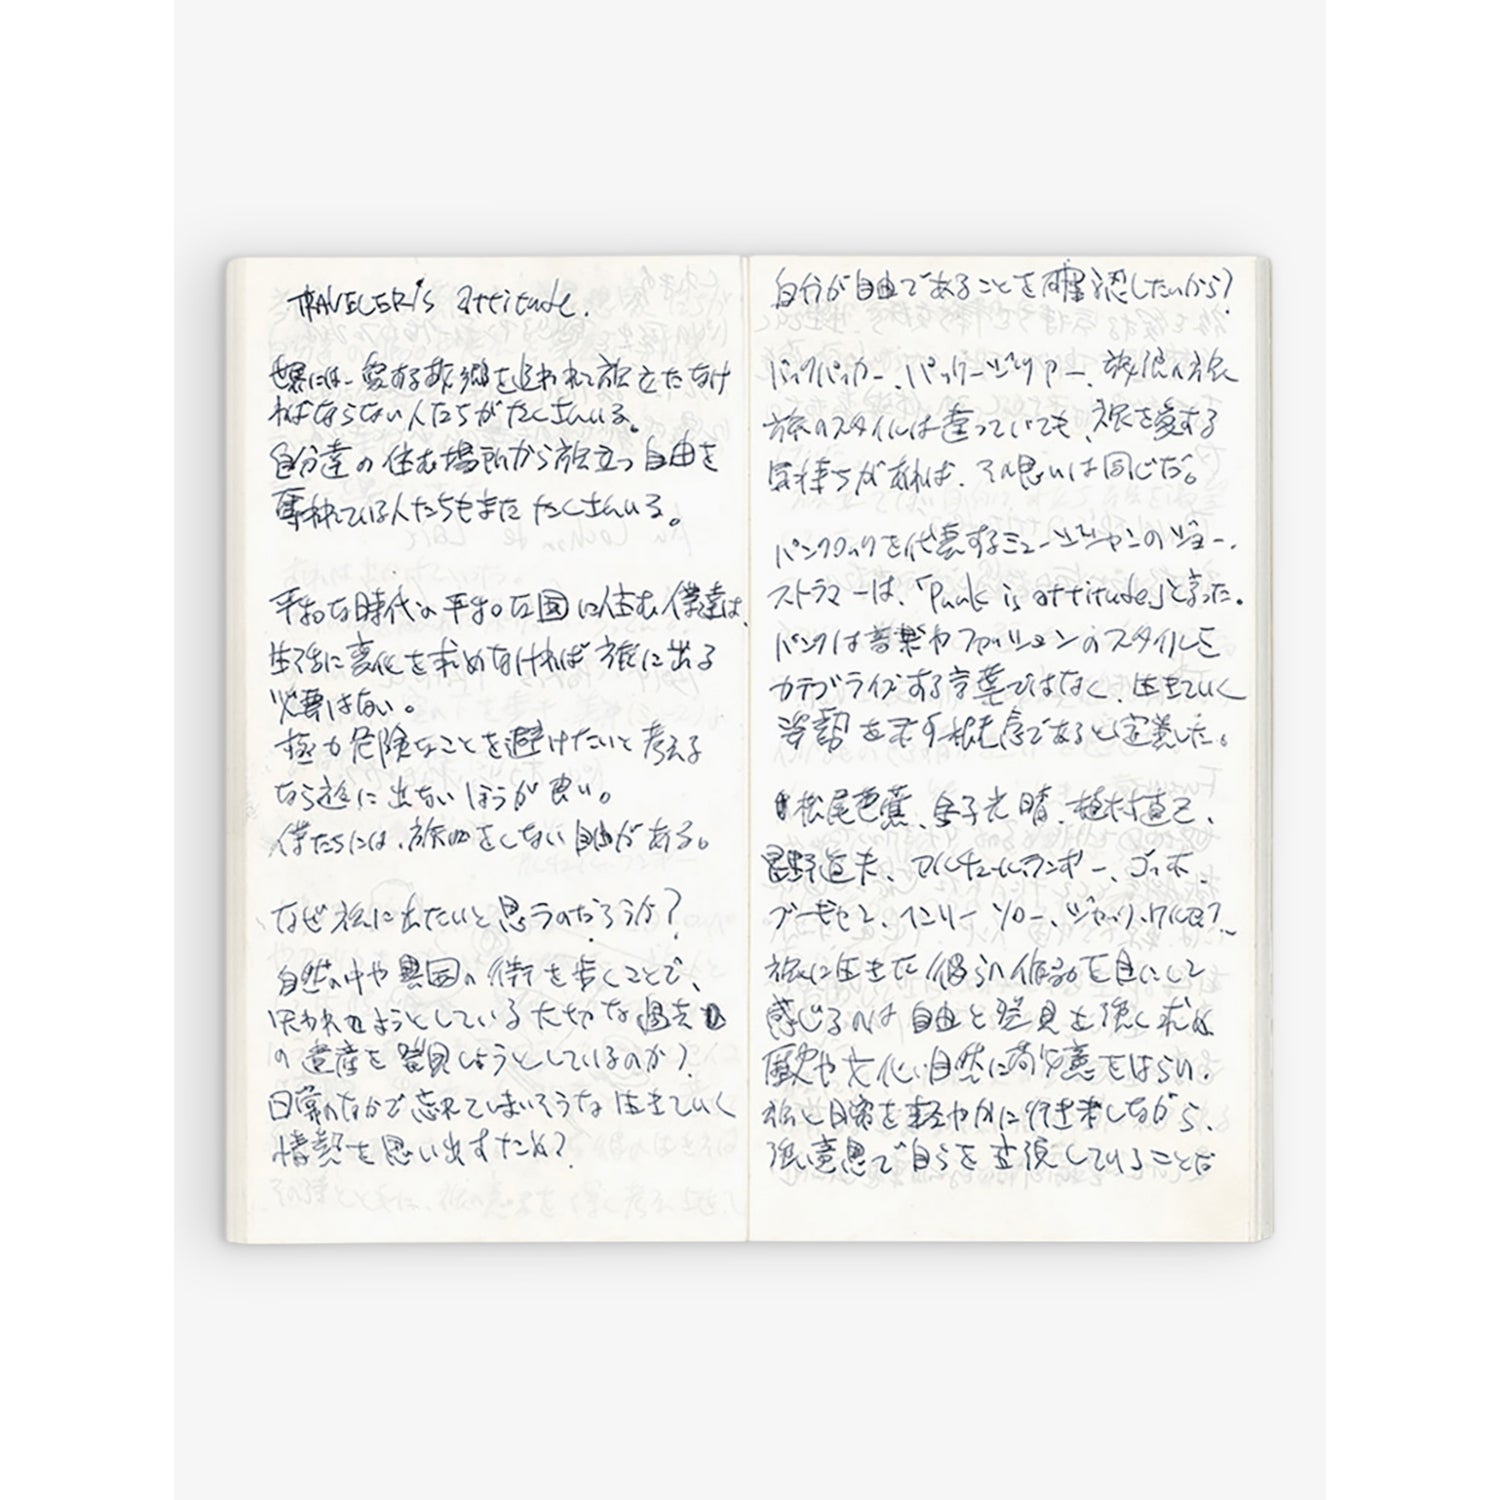 TRAVELER's attitude.
世界には、愛する故郷を追われて旅立たなけ
ればならない人たちがたくさんいる。
自分達の住む場所から旅立つ自由を
奪われている人たちもまたたくさんいる。
平和な時代の平和な国に住む僕達は、
生活に変化を求めなければ旅に出る
必要はない。
極力危険なことを避けたいと考える
なら旅に出ないほうが良い。
僕たちには、旅をしない自由がある。
なぜ旅に出たいと思うのだろうか?
自然の中や異国の街を歩くことで、
失われようとしている大切な過去
の遺産を発見しようとしているのか?
日常のなかで忘れてしまいそうな生きていく
情熱を思い出すため?
自分が自由であることを確認したいから?
バックパッカー、パッケージツアー、放浪の旅
旅のスタイルは違っていても、旅を愛する
気持ちがあれば、その思いは同じだ。
パンクロックを代表するミュージシャンのジョー・
ストラマーは、「Punk is attitude」と言った。
パンクは音楽やファッションのスタイルを
カテゴライズする言葉ではなく、生きていく
姿勢を示す秩序であると定義した。
松尾芭蕉、金子光晴、植村直己、
星野道夫、アルチュール・ランボー、ゴッホ、
ブーギセン、ヘンリー・ソロー、ジャック・ケルアック、
旅に生きた彼らの作品を目にして
感じるのは自由と発見を強く求め
歴史や文化、自然に敬意をはらい、
旅と日常を軽やかに行き来しながら、
強い意思で自らを主張していることだ